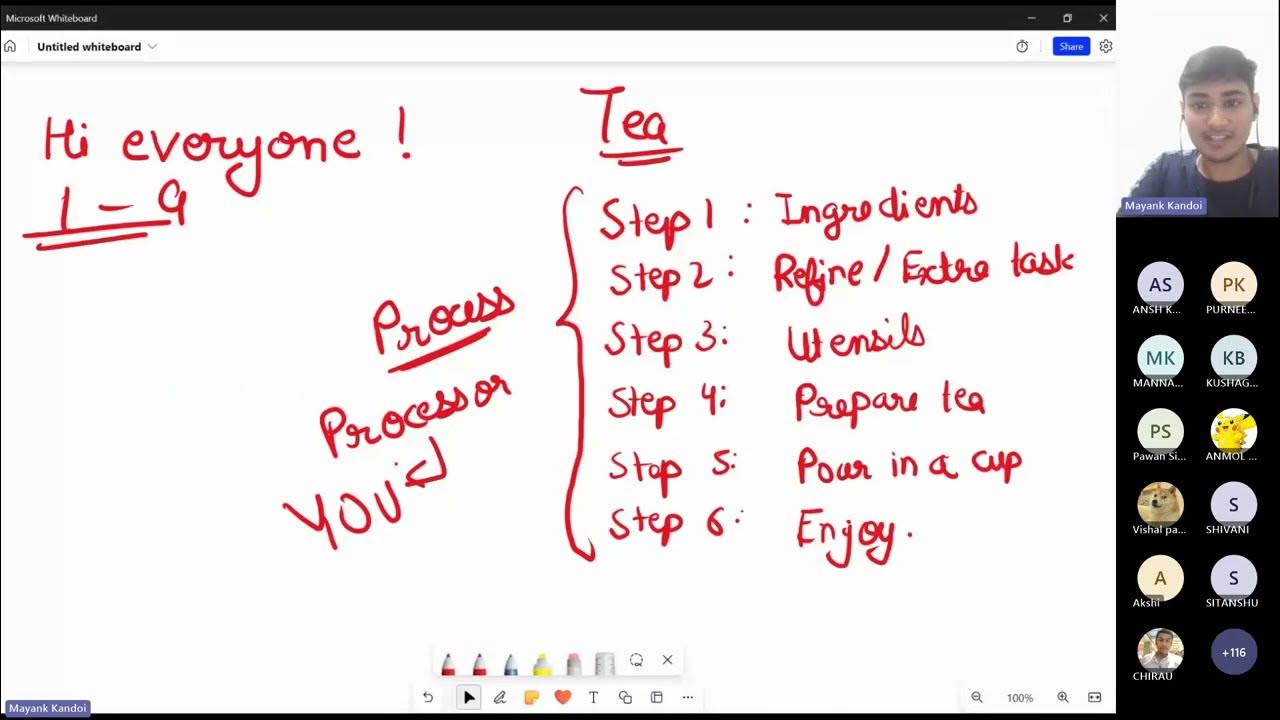 Microsoft Whiteboard
Untitled whiteboard
Share
Hi everyone !
1 - 9
Tea
Step 1 : Ingredients
Step 2 : Refine / Extra task
Step 3: Utensils
Step 4: Prepare tea
Step 5: Pour in a cup
Step 6: Enjoy.
Process
Processor
YOU
Mayank Kandoi
AS
ANSH K...
PK
PURNEE...
MK
MANNA...
KB
KUSHAG...
PS
Pawan Si...
ANMOL ...
Vishal pa...
S
SHIVANI
A
Akshi
S
SITANSHU
CHIRAU
+116
T
100%
Mayank Kandoi